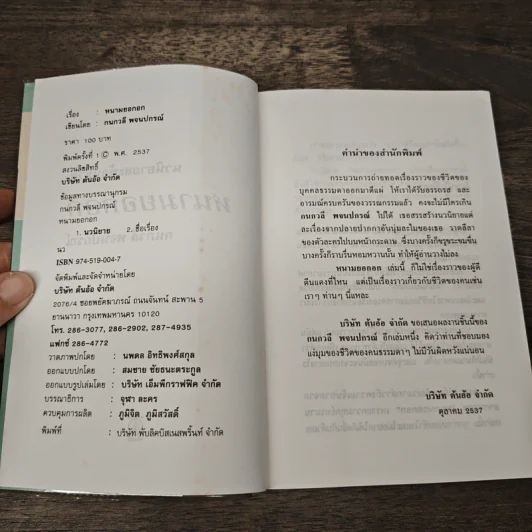 เรื่อง : หนามยอกอก
เขียนโดย : กนกวลี พจนปกรณ์
ราคา 100 บาท
พิมพ์ครั้งที่ 1 © พ.ศ. 2537
สงวนลิขสิทธิ์
บริษัท ต้นอ้อ จำกัด
ข้อมูลทางบรรณานุกรม
กนกวลี พจนปกรณ์
หนามยอกอก
1. นวนิยาย 2. ชื่อเรื่อง
นว
ISBN 974-519-004-7
จัดพิมพ์และจัดจำหน่ายโดย
บริษัท ต้นอ้อ จำกัด
2076/4 ซอยพลัดพาภรณ์ ถนนจันทน์ สะพาน 5
ยานนาวา กรุงเทพมหานคร 10120
โทร. 286-3077, 286-2902, 287-4935
แฟกซ์ 286-4772
วาดภาพปกโดย : นพดล อิทธิพงศ์สกุล
ออกแบบปกโดย : สมชาย ชัยธนะตระกูล
ออกแบบรูปเล่มโดย : บริษัท เอ็มพีกราฟฟิค จำกัด
บรรณาธิการ : จุฬา ละคร
ควบคุมการผลิต : ภูมิจิต ภูมิสวัสดิ์
พิมพ์ที่ : บริษัท พับลิคบิสเนสพริ้นท์ จำกัด
คำนำของสำนักพิมพ์
กระบวนการถ่ายทอดเรื่องราวของชีวิตของ
บุคคลธรรมดาออกมาดีแค่ ให้เราได้รับอรรถรส และ
อารมณ์ควบคู่กันของวรรณกรรมแล้ว คงจะไม่มีใครเกิน
กนกวลี พจนปกรณ์ ไปได้ เธอสรรสร้างนวนิยายแต่
ละเรื่องจากปลายปากกาอันนุ่มละไมของเธอ วาดลีลา
ของตัวละครไปบนหน้ากระดาษ ซึ่งบางครั้งก็ขรุขระขมขื่น
บางครั้งก็ราบรื่นหอมหวานนั้น ทำให้ผู้อ่านวางไม่ลง
หนามยอกอก เล่มนี้ ก็ไม่ใช่เรื่องราวของผู้ดี
ตีนแดงที่ไหน แต่เป็นเรื่องราวเกี่ยวกับชีวิตของคนเช่น
เราๆ ท่านๆ นี่แหละ
บริษัท ต้นอ้อ จำกัด ขอเสนอผลงานชิ้นนี้ของ
กนกวลี พจนปกรณ์ อีกเล่มหนึ่ง คิดว่าท่านที่ชอบมอง
แง่มุมของชีวิตของคนธรรมดาๆ ไม่มีวันผิดหวังแน่นอน
บริษัท ต้นอ้อ จำกัด
ตุลาคม 2537